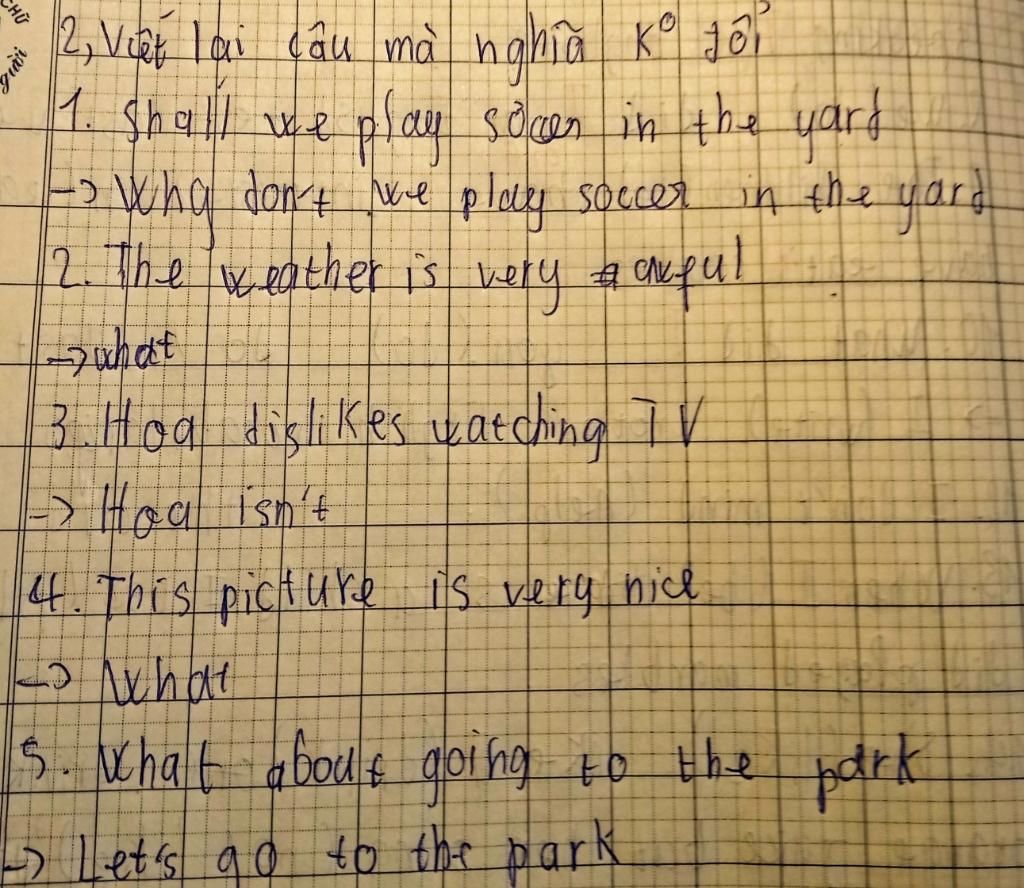 CHỮ
giải
2, Viết lại câu mà nghĩa K° đổi
1. Shall we play soccer in the yard
-> Why don't we play soccer in the yard
2. The weather is very awful
-> what
3. Hoa dislikes watching TV
-> Hoa isn't
4. This picture is very nice
-> What
5. What about going to the park
-> Let's go to the park